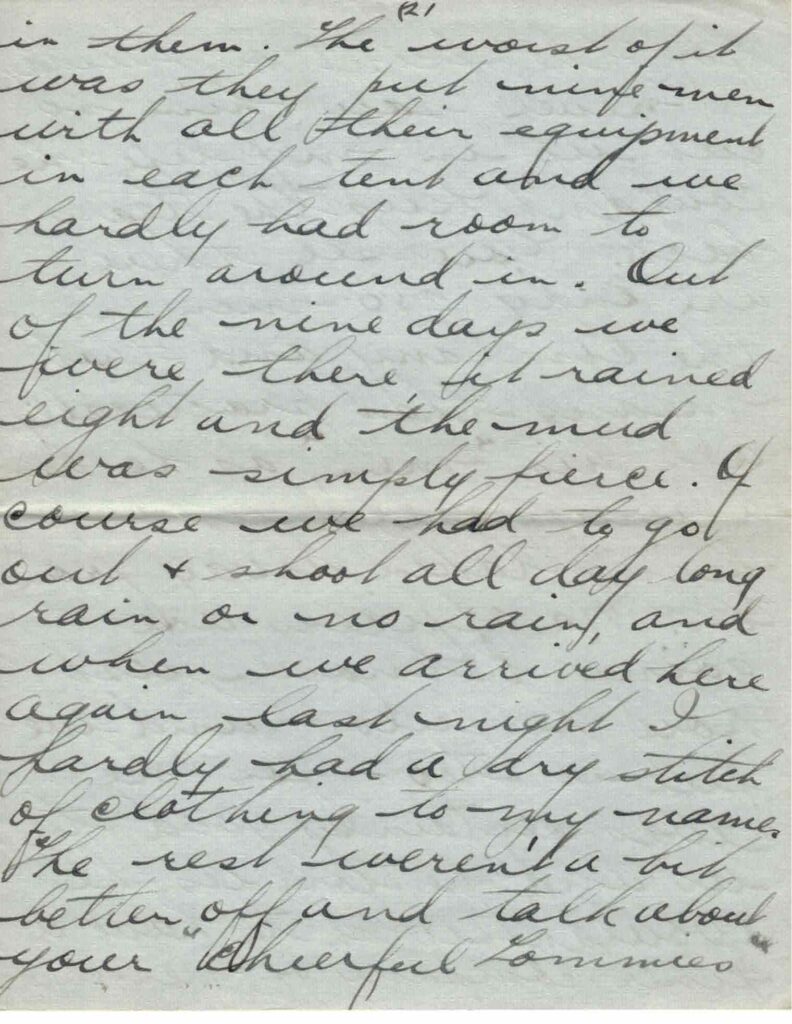 (2)
in them. The worst of it
was they put nine men
with all their equipment
in each tent and we
hardly had room to
turn around in. Out
of the nine days we
were there, it rained
eight and the mud
was simply fierce. Of
course we had to go
out + shoot all day long
rain or no rain, and
when we arrived here
again last night I
hardly had a dry stitch
of clothing to my name.
The rest weren't a bit
better off and talk about
your "cheerful Tommies"